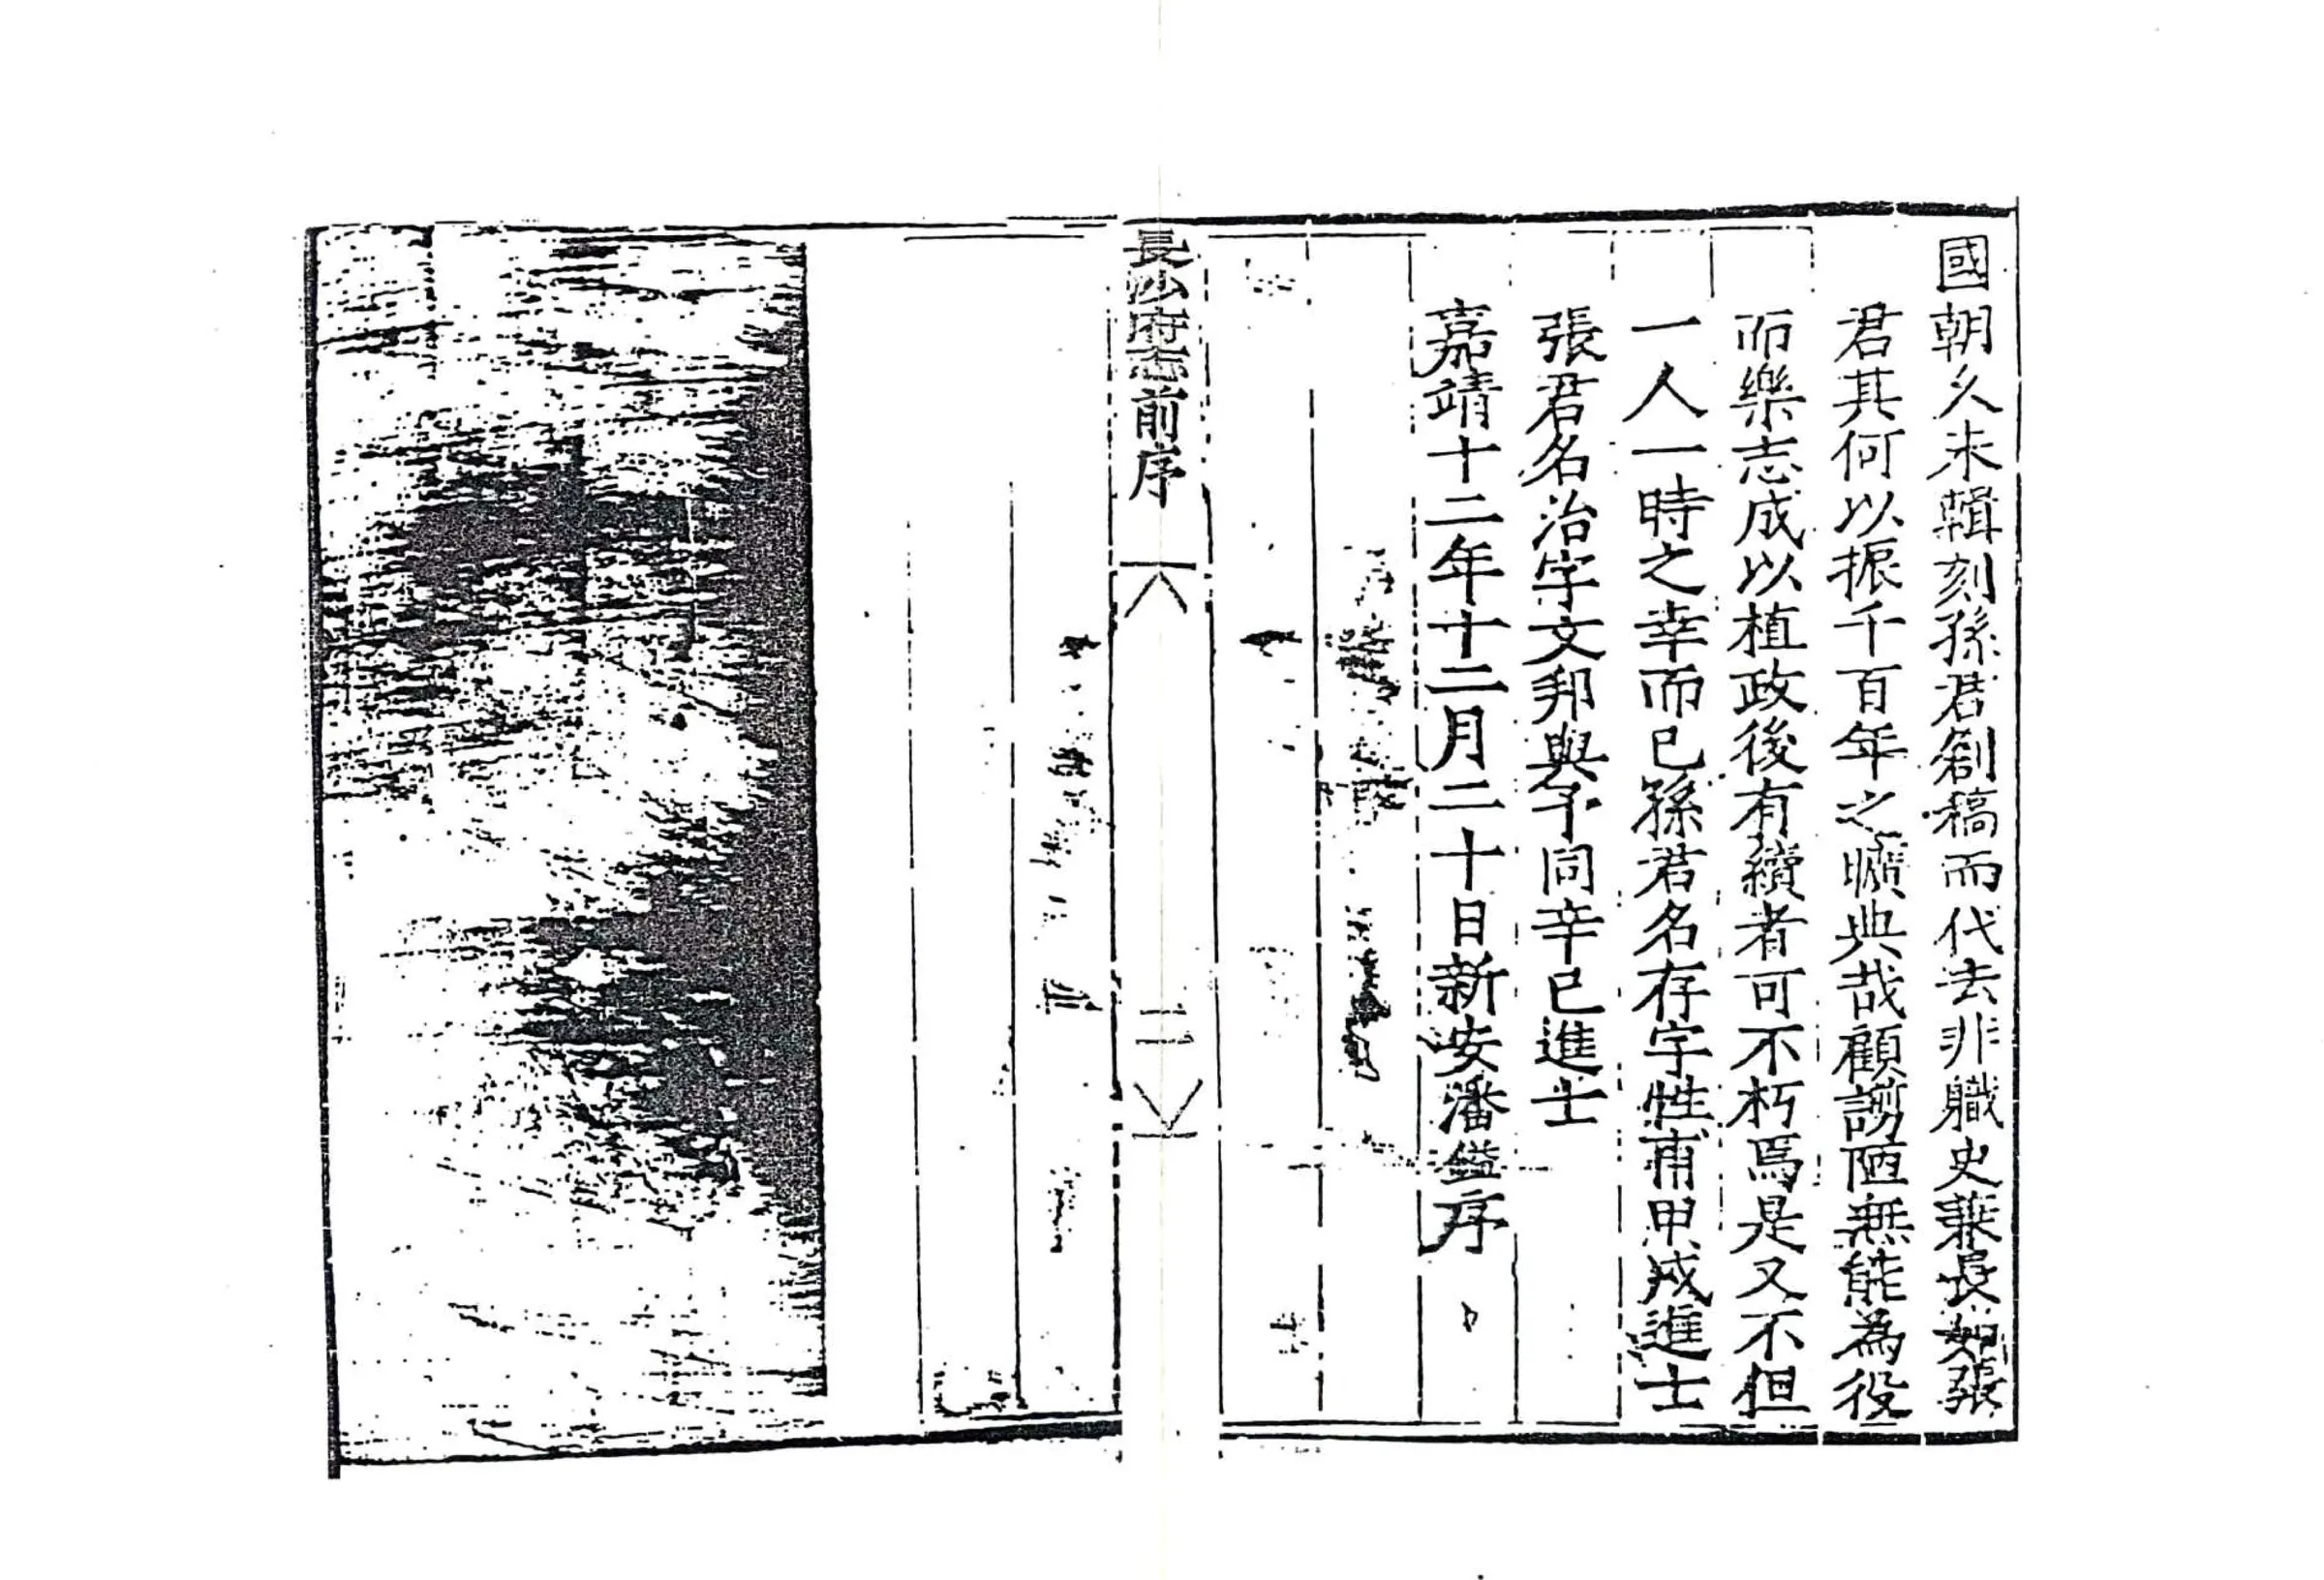 國朝久未輯刻孫君創稿而代去非職史兼長如張
君其何以振千百年之曠典哉顧謭陋無能為役
而樂志成以植政後有續者可不朽焉是又不但
一人一時之幸而已孫君名存字性甫甲戌進士
張君名治字文邦與予同辛巳進士
嘉靖十二年十二月二十日新安潘鎰序
長沙府志前序
二